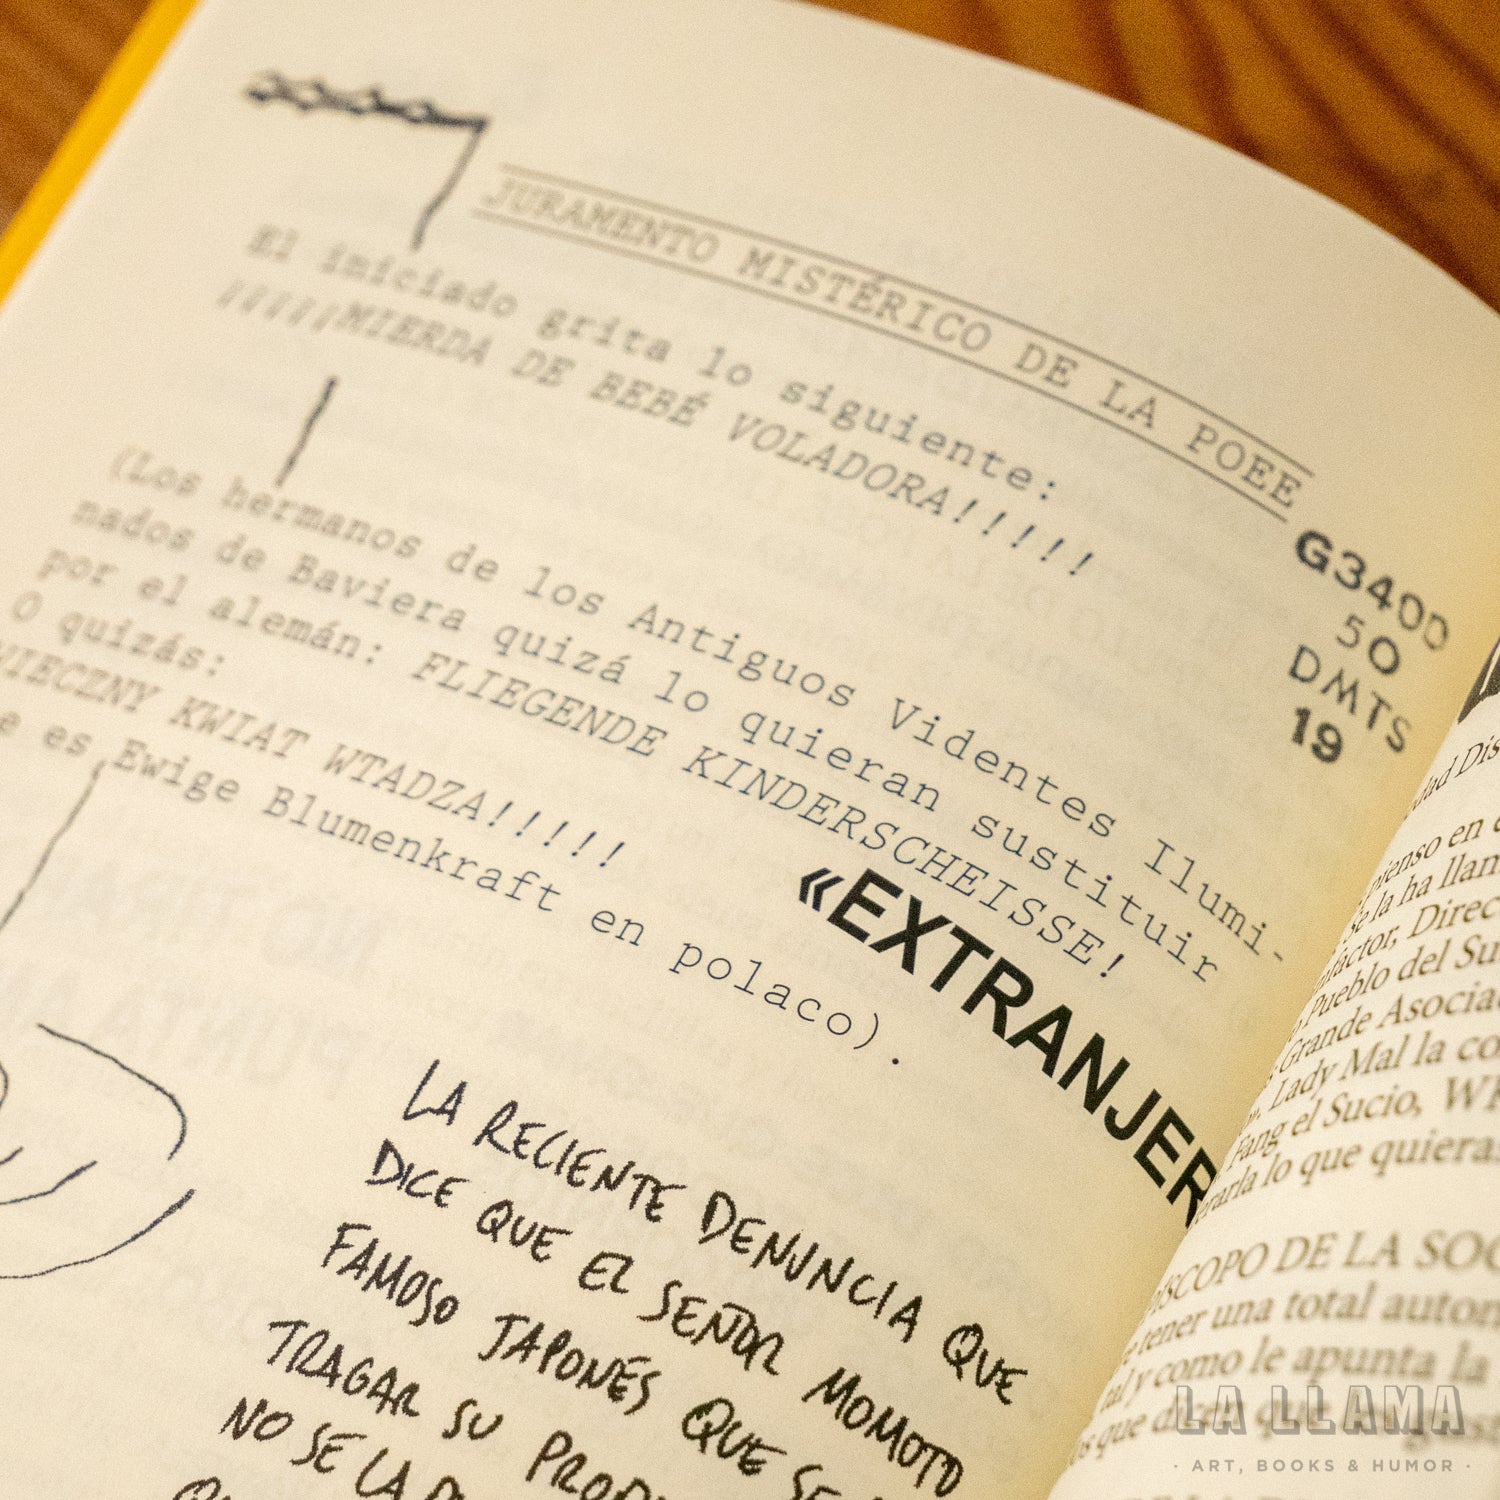 JURAMENTO MISTÉRICO DE LA POEE
El iniciado grita lo siguiente:
¡¡¡¡¡MIERDA DE BEBÉ VOLADORA!!!!!
(Los hermanos de los Antiguos Videntes Ilumi-
nados de Baviera quizá lo quieran sustituir
por el alemán: FLIEGENDE KINDERSCHEISSE!
O quizás:
WIECZNY KWIAT WTADZA!!!!!
es Ewige Blumenkraft en polaco).
G3400
50
DMTS
19
«EXTRANJER
LA RECIENTE DENUNCIA QUE
DICE QUE EL SEÑOR MOMOTO
FAMOSO JAPONÉS QUE SE
TRAGAR SU
NO SE LA
pienso en
se la ha
Direc
Pueblo del Su
Grande Asocia
Lady Mal la co
Fang el Sucio,
lo que quieras
DE LA SOC
tener una total auton
y como le apunta la
que dicen que
LA LLAMA
· ART, BOOKS & HUMOR ·